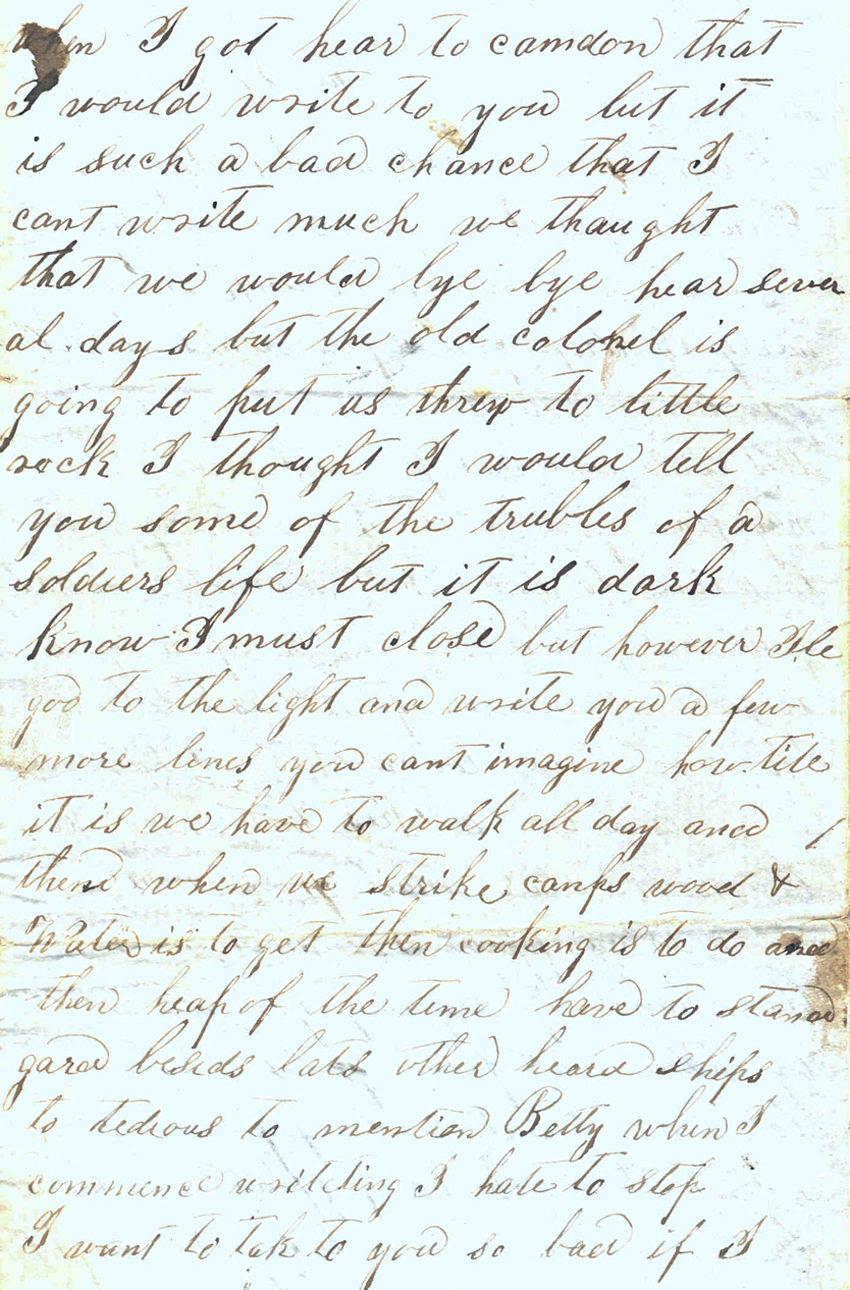 when I got hear to camdon that
I would write to you but it
is such a bad chance that I
cant write much we thaught
that we would lye bye hear sever
al days but the old colonel is
going to put us threw to little
rock I thought I would tell
you some of the trubles of a
soldiers life but it is dark
know I must close but however Ile
goo to the light and write you a few
more lines you cant imagine how tile
it is we have to walk all day and
then when we strike camps wood &
Water is to get then cooking is to do and
then heap of the time have to stand
gard besids lats other heard ships
to tedious to mention Betty when I
commence writting I hate to stop
I want to tak to you so bad if I